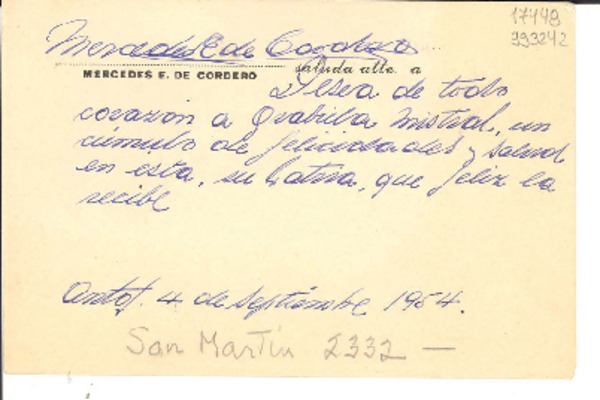 17448
993242
Mercedes E de Cordero
MERCEDES E. DE CORDERO saluda atte. a
Desea de todo
corazón a Gabriela Mistral, un
cúmulo de felicidades y salud
en esta, su Patria, que feliz la
recibe
Antof. 4 de septiembre 1954.
San Martín 2332 —